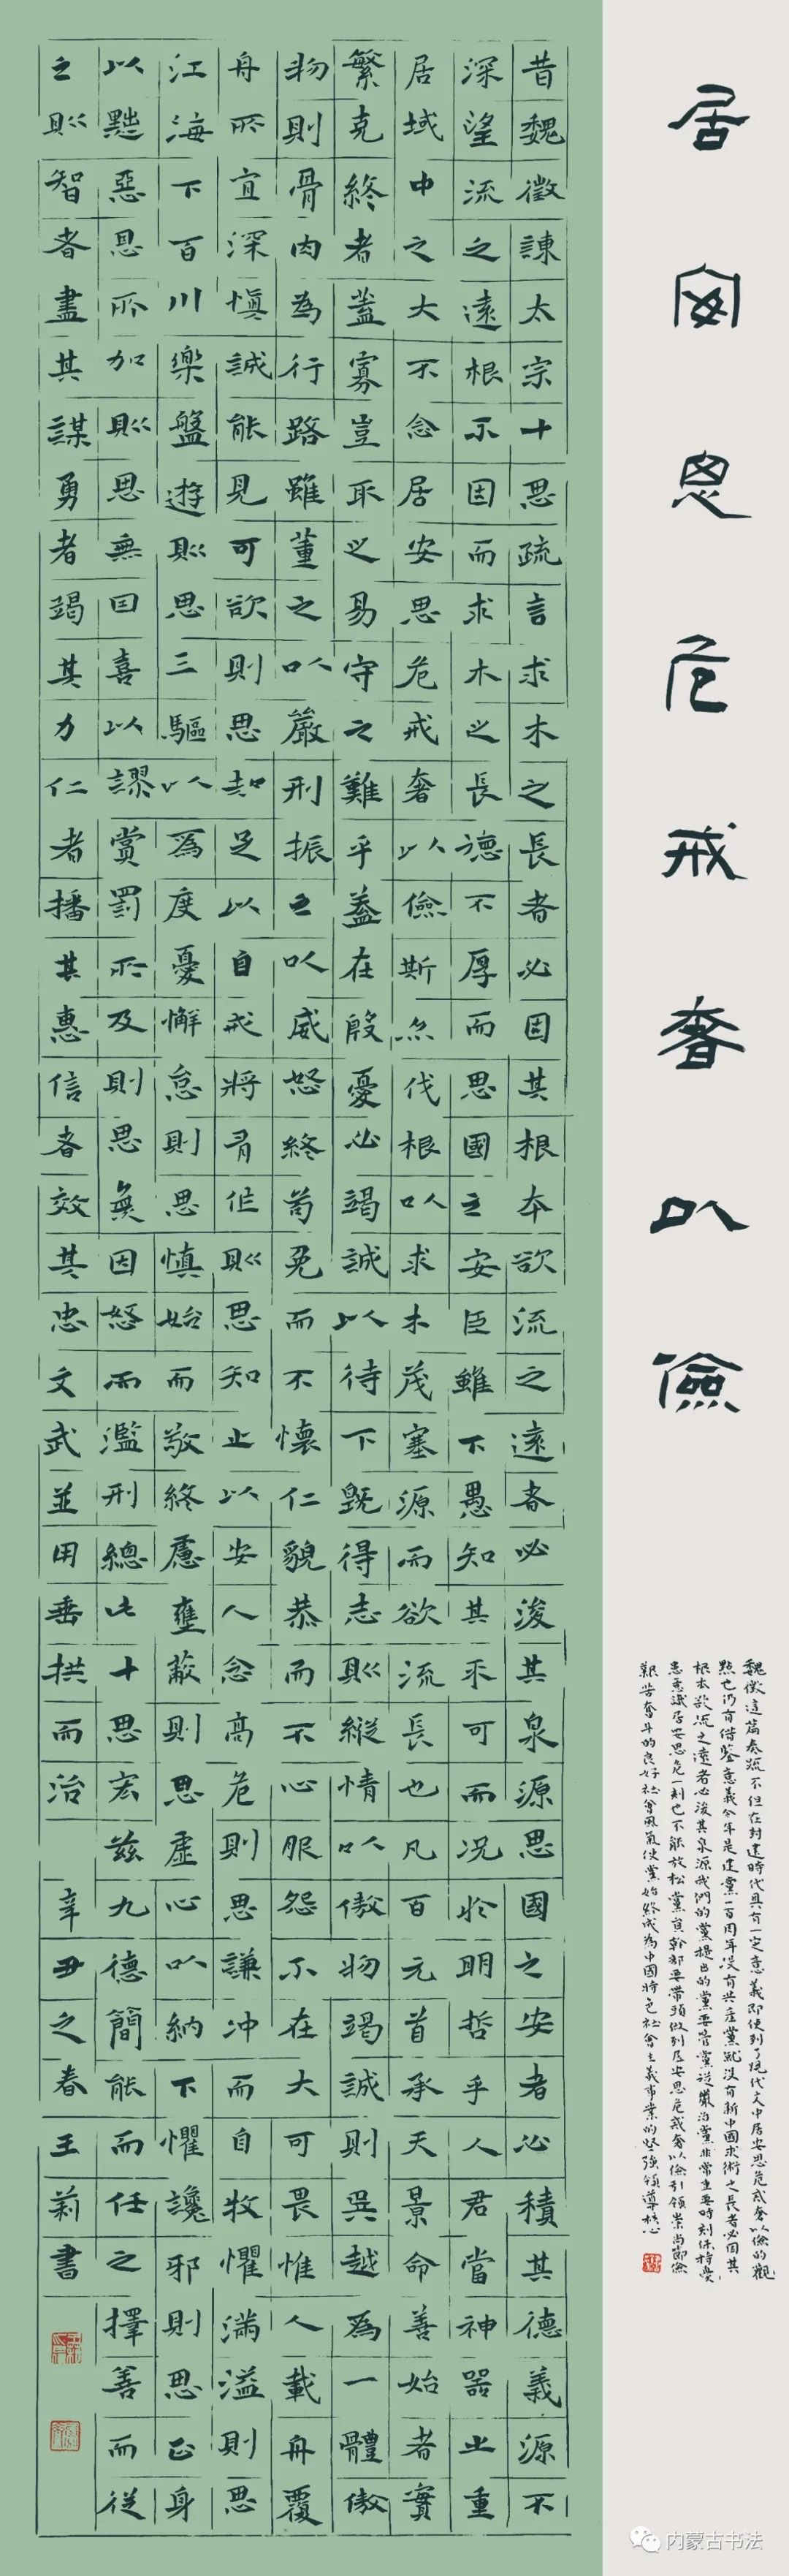 居安思危戒奢以儉
魏徵這篇奏疏不但在封建時代具有一定意義即使到了現代文中居安思危戒奢以儉的觀
點也仍有借鑒意義今年是建黨一百周年沒有共產黨就沒有新中國求術之長者必固其
根本欲流之遠者必浚其泉源我們的黨提出的黨要管黨從嚴治黨非常重要時刻保持憂
患意識居安思危一刻也不能放松黨員幹部要帶頭做到居安思危戒奢以儉引領崇尚節儉
艱苦奮斗的良好社會風氣使黨始終成為中國特色社會主義事業的堅強領導核心
昔魏徵諫太宗十思疏言求木之長者必固其根本欲流之遠者必浚其泉源思國之安者必積其德義源不
深望流之遠根不固而求木之長德不厚而思國之安臣雖下愚知其不可而況於明哲乎人君當神器之重
居域中之大不念居安思危戒奢以儉斯亦伐根以求木茂塞源而欲流長也凡百元首承天景命善始者實
繁克終者蓋寡豈取之易守之難乎蓋在殷憂必竭誠以待下既得志則縱情以傲物竭誠則吳越為一體傲
物則骨肉為行路雖董之以嚴刑振之以威怒終苟免而不懷仁貌恭而不心服怨不在大可畏惟人載舟覆
舟所宜深慎誠能見可欲則思知足以自戒將有作則思知止以安人念高危則思謙沖而自牧懼滿溢則思
江海下百川樂盤遊則思三驅以為度憂懈怠則思慎始而敬終慮壅蔽則思虛心以納下懼讒邪則思正身
以黜惡恩所加則思無因喜以謬賞罰所及則思無因怒而濫刑總此十思宏茲九德簡能而任之擇善而從
之則智者盡其謀勇者竭其力仁者播其惠信者效其忠文武並用垂拱而治 辛丑之春王莉書
内蒙古书法